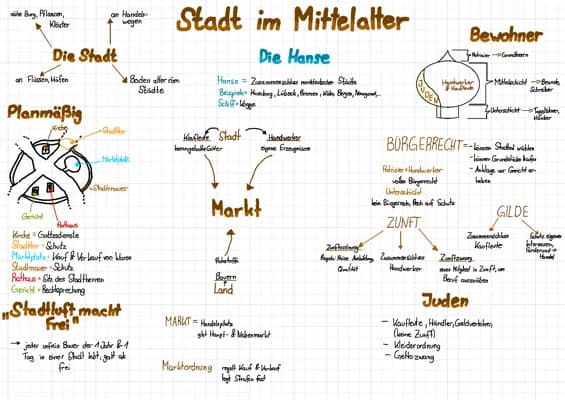 Stadt im Mittelalter
nähe Burg, Pfalzen,
Klöster
an Handels-
wegen
Die Stadt
an Flüssen, Häfen
Boden alter röm.
Städte
Die Hanse
Hanse = Zusammenschluss norddeutscher Städte
Beispiele = Hamburg, Lübeck, Bremen, Köln, Bergen,
Schiff = Kogge
Bewohner
Patrizier
Grundherrn
JUDEN
Handwerker
& Kaufleute
Mittelschicht
Beamte,
Schreiber
Unterschicht
Tagelöhner,
Planmäßig
Kirche
Stadttor
Marktplatz
Stadtmauer
Gericht
Rathaus
Kirche = Gottesdienste
Stadttor = Schutz
Marktplatz = Kauf & Verkauf von Waren
Stadtmauer = Schutz
Rathaus = Sitz des Stadtherren
Gericht = Rechtsprechung
Kaufleute
Stadt
Handwerker
eigene Erzeugnisse
Markt
Rohstoffe
Bauern
Land
BÜRGERRECHT
- können Stadtrat wählen
- können Grundstücke kaufen
- Anklage vor Gericht er-
heben
Patrizier + Handwerker
volles Bürgerrecht
Unterschicht
kein Bürgerrecht, Recht auf Schutz
ZUNFT
Zunftordnung
Regeln: Preise, Ausbildung,
Qualität
Zusammenschluss
Handwerker
Zunftzwang
muss Mitglied in Zunft, um
Beruf auszuüben
GILDE
Zusammenschluss
Kaufleute
Schutz eigener
Interessen,
Förderung
Handel
"Stadtluft macht
Frei"
→ jeder unfreie Bauer der 1 Jahr & 1
Tag in einer Stadt lebt, galt als
frei
MARKT = Handelsplatz
gibt Haupt- & Nebenmarkt
Marktordnung
regelt Kauf & Verkauf
legt Strafen fest
Juden
- Kaufleute, Händler, Geldverleiher,
(keine Zunft)
- Kleiderordnung
- Ghettozwang